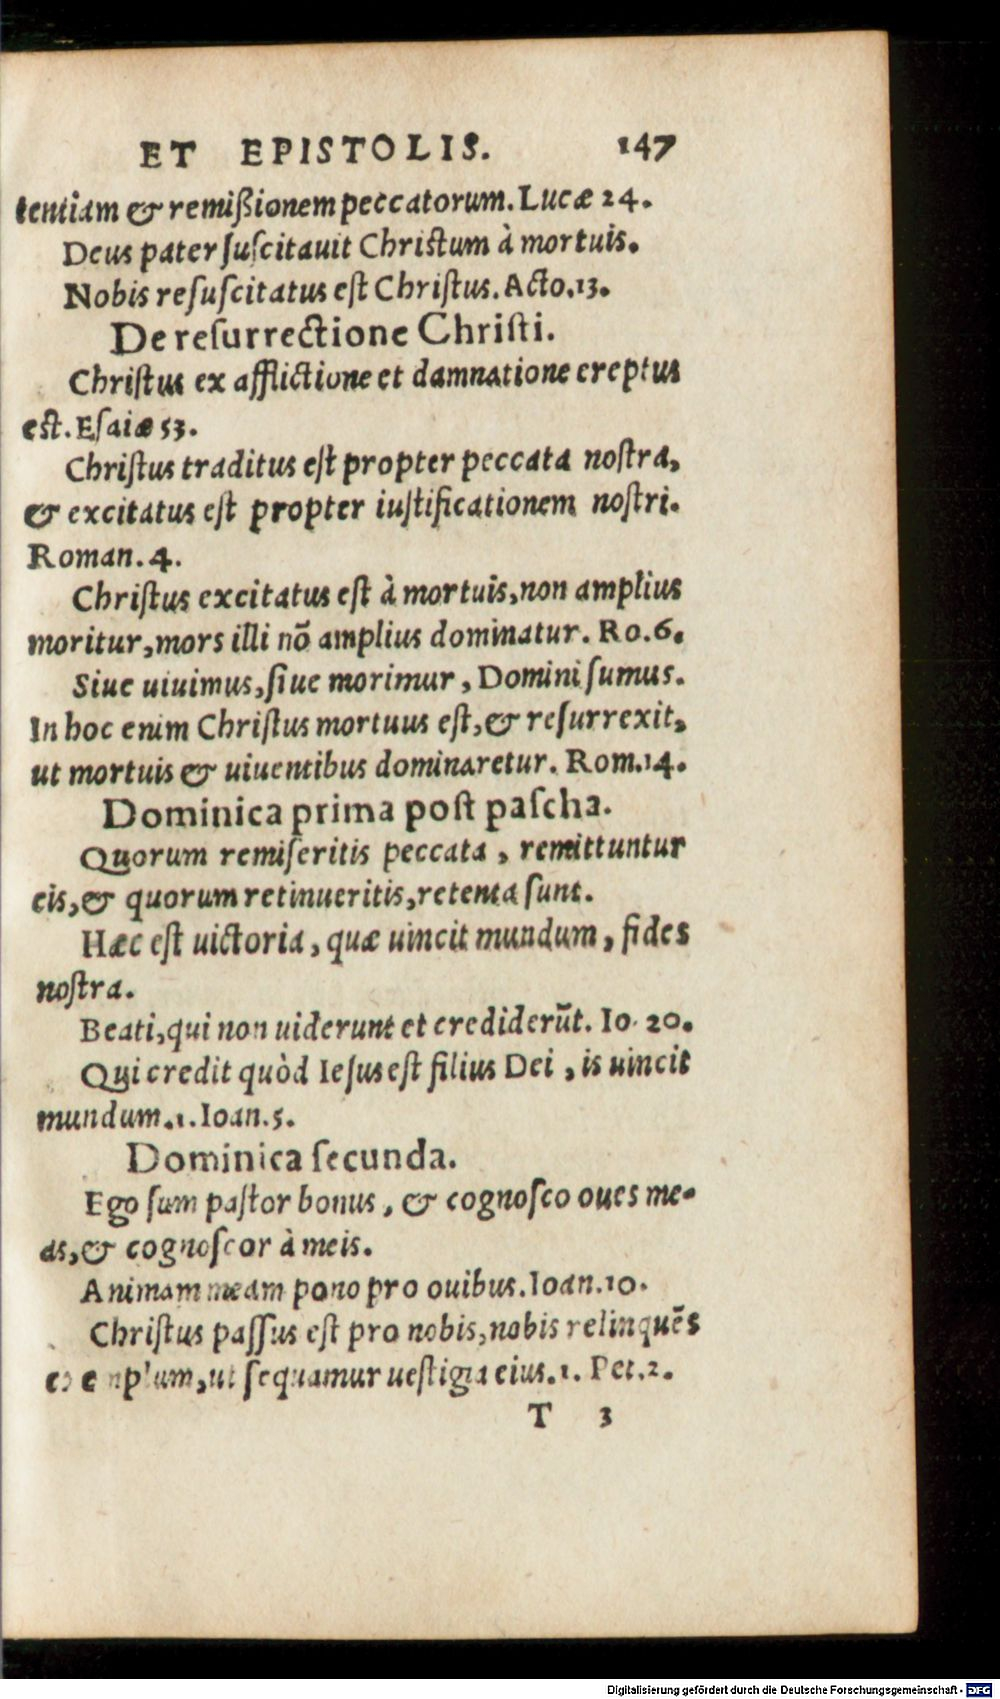 ET EPISTOLIS. 147
tentiam & remißionem peccatorum. Lucæ 24.
Deus pater ſuſcitauit Chriſtum à mortuis.
Nobis reſuſcitatus eſt Chriſtus. Acto.13.
De reſurrectione Chriſti.
Chriſtus ex afflictione et damnatione ereptus
eſt. Eſaiæ 53.
Chriſtus traditus eſt propter peccata noſtra,
& excitatus eſt propter iuſtificationem noſtri.
Roman. 4.
Chriſtus excitatus eſt à mortuis, non amplius
moritur, mors illi nõ amplius dominatur. Ro.6.
Siue uiuimus, ſiue morimur, Domini ſumus.
In hoc enim Chriſtus mortuus eſt, & reſurrexit,
ut mortuis & uiuentibus dominaretur. Rom.14.
Dominica prima poſt paſcha.
Quorum remiſeritis peccata, remittuntur
eis, & quorum retinueritis, retenta ſunt.
Hæc eſt uictoria, quæ uincit mundum, fides
noſtra.
Beati, qui non uiderunt et crediderũt. Io. 20.
Qui credit quòd Ieſus eſt filius Dei, is uincit
mundum. 1. Ioan. 5.
Dominica ſecunda.
Ego ſum paſtor bonus, & cognoſco oues me-
as, & cognoſcor à meis.
Animam meam pono pro ouibus. Ioan.10.
Chriſtus paſſus eſt pro nobis, nobis relinquẽs
exemplum, ut ſequamur ueſtigia eius. 1. Pet.2.
T 3
Digitalisierung gefördert durch die Deutsche Forschungsgemeinschaft - DFG